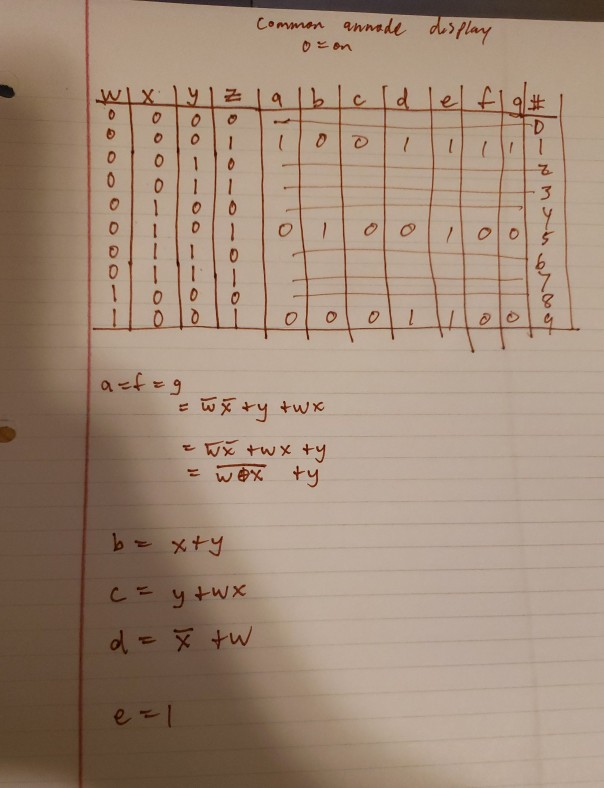 common annode display
0 = on
W X Y Z a b c d e f g #
0 0 0 0 0
0 0 0 1 1 0 0 1 1 1 1 1
0 0 1 0 2
0 0 1 1 3
0 1 0 0 4
0 1 0 1 0 1 0 0 1 0 0 5
0 1 1 0 6
0 1 1 1 7
1 0 0 0 8
1 0 0 1 0 0 0 1 1 0 0 9
a = f = g
= w̅ x̅ + y + wx
= w̅ x̅ + wx + y
= \overline{w⊕x} + y
b = x + y
c = y + wx
d = x̅ + w
e = 1